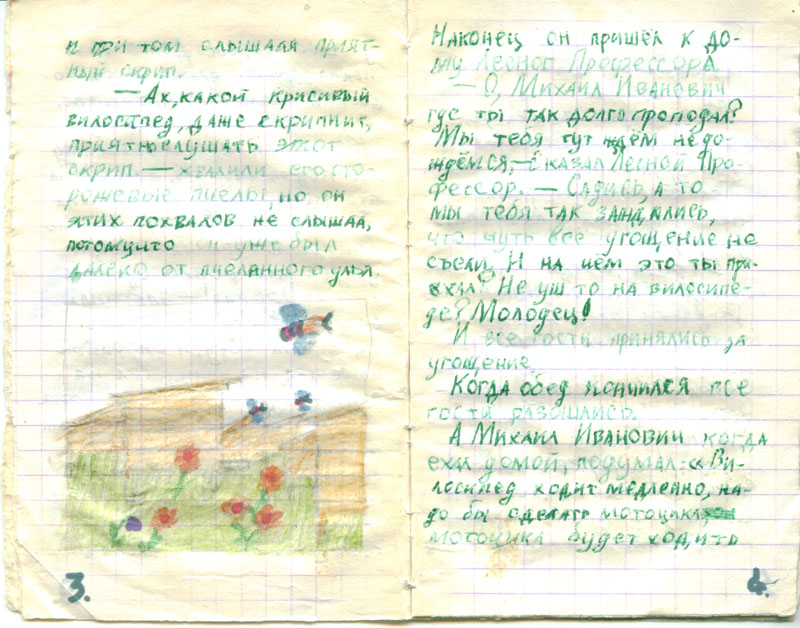 и при том слышался прият-
ный скрип.
— Ах, какой красивый
вилосипед, даже скрипит,
приятно слушать этот
скрип. — хвалили его сто-
рожевые пчелы, но он
этих похвалов не слышал,
потомушто он уже был
далеко от пчелинного улья.
3.
Наконец он пришёл к до-
му Лесного Профессора.
— О, Михаил Иванович
где ты так долго проподал?
Мы тебя тут ждём не до-
ждёмся, — сказал Лесной Про-
фессор. — Садись, а то
мы тебя так заждались,
что чуть всё угощение не
съели. И на чём это ты при-
ехал? Не уш то на вилосипе-
де? Молодец!
И все гости принялись за
угощение.
Когда обед кончился все
гости разошлись.
А Михаил Иванович когда
ехал домой, подумал: «Ви-
лосипед ходит медленно, на-
до бы сделать мотоцикл,
мотоцикл будет ходить
4.